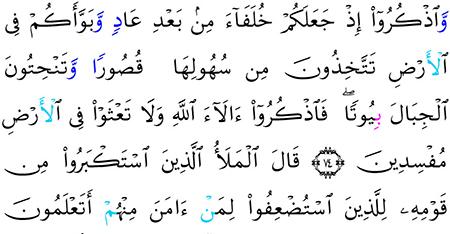 وَٱذْكُرُوٓا۟ إِذْ جَعَلَكُمْ خُلَفَآءَ مِنۢ بَعْدِ عَادٍ وَبَوَّأَكُمْ فِى
ٱلْأَرْضِ تَتَّخِذُونَ مِن سُهُولِهَا قُصُورًا وَتَنْحِتُونَ
ٱلْجِبَالَ بِيُوتًا ۖ فَٱذْكُرُوٓا۟ ءَالَآءَ ٱللَّهِ وَلَا تَعْثَوْا۟ فِى ٱلْأَرْضِ
مُفْسِدِينَ ﴿٧٤﴾ قَالَ ٱلْمَلَأُ ٱلَّذِينَ ٱسْتَكْبَرُوا۟ مِن
قَوْمِهِۦ لِلَّذِينَ ٱسْتُضْعِفُوا۟ لِمَنْ ءَامَنَ مِنْهُمْ أَتَعْلَمُونَ